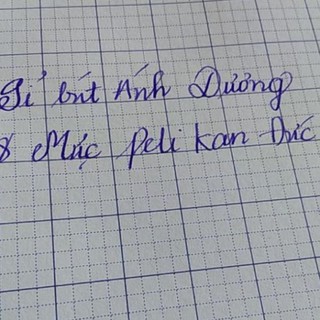 Sỉ bút Ánh Dương
& Mực Peli kan Đức